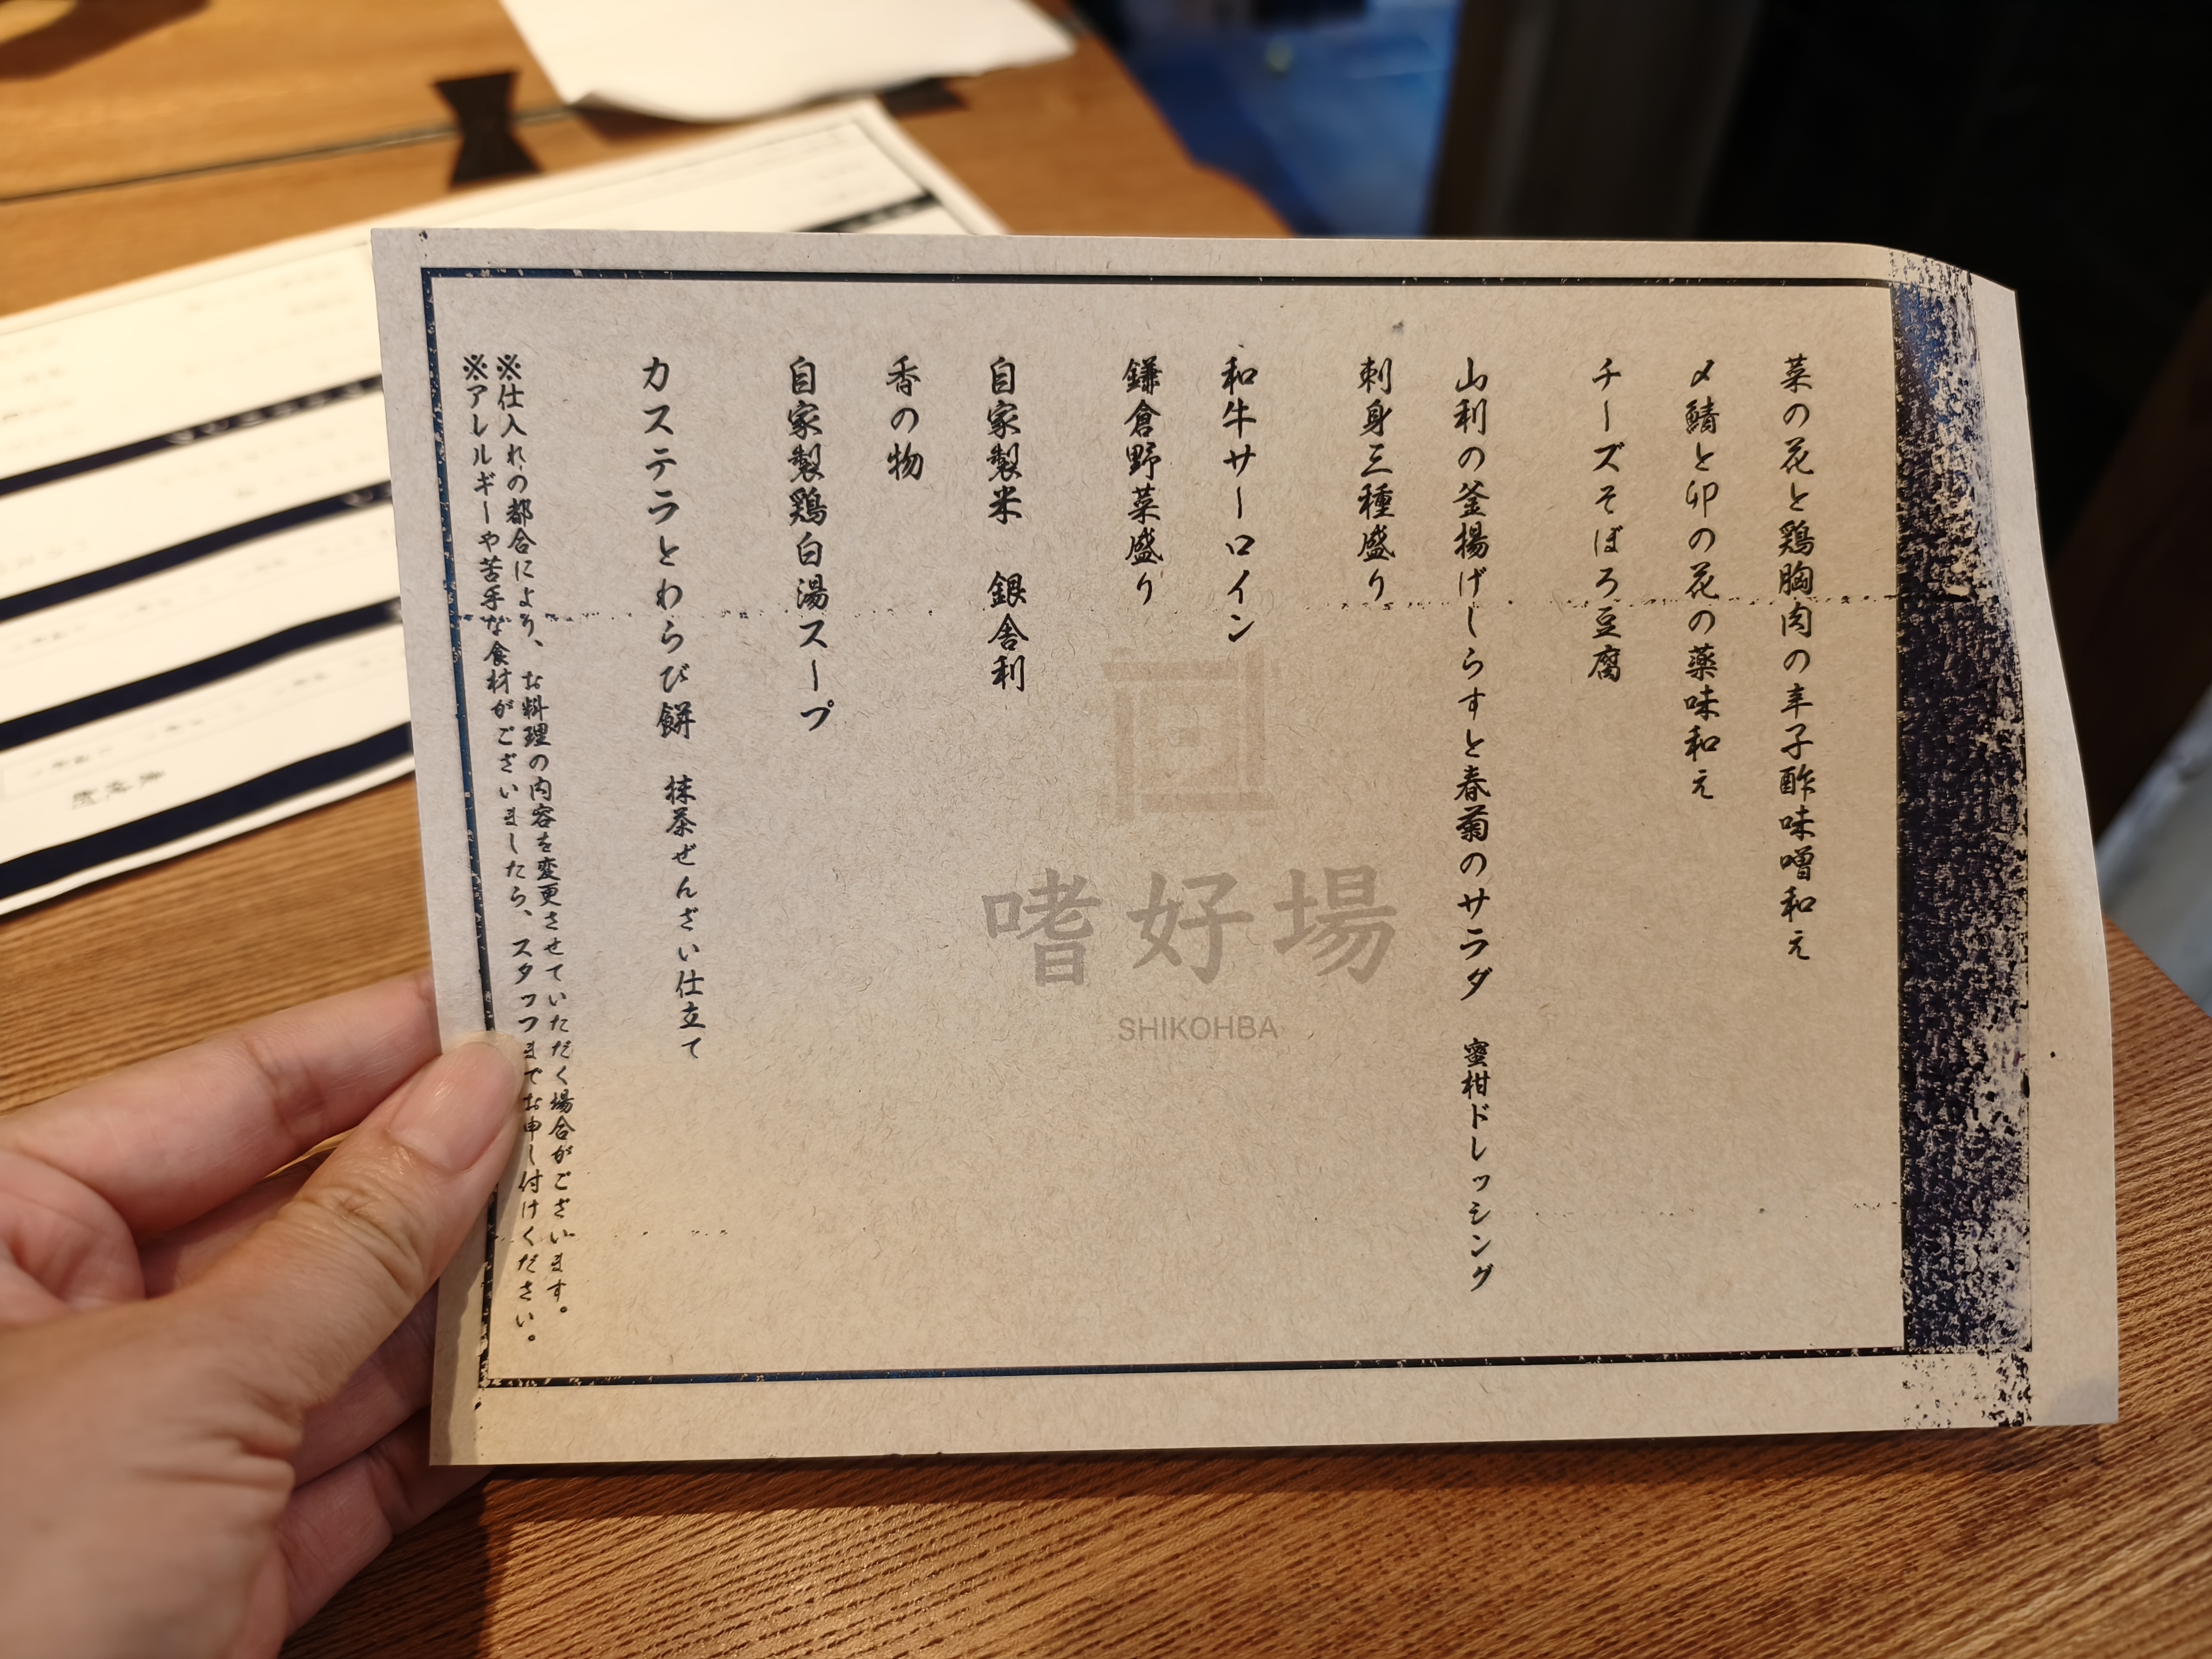 菜の花と鶏胸肉の辛子酢味噌和え
〆鯖と卯の花の薬味和え
チーズそぼろ豆腐
山利の釜揚げしらすと春菊のサラダ 蜜柑ドレッシング
刺身三種盛り
和牛サーロイン
鎌倉野菜盛り
自家製米 銀舎利
香の物
自家製鶏白湯スープ
カステラとわらび餅 抹茶ぜんざい仕立て
※仕入れの都合により、お料理の内容を変更させていただく場合がございます。
※アレルギーや苦手な食材がございましたら、スタッフまでお申し付けください。
嗜好場
SHIKOHBA